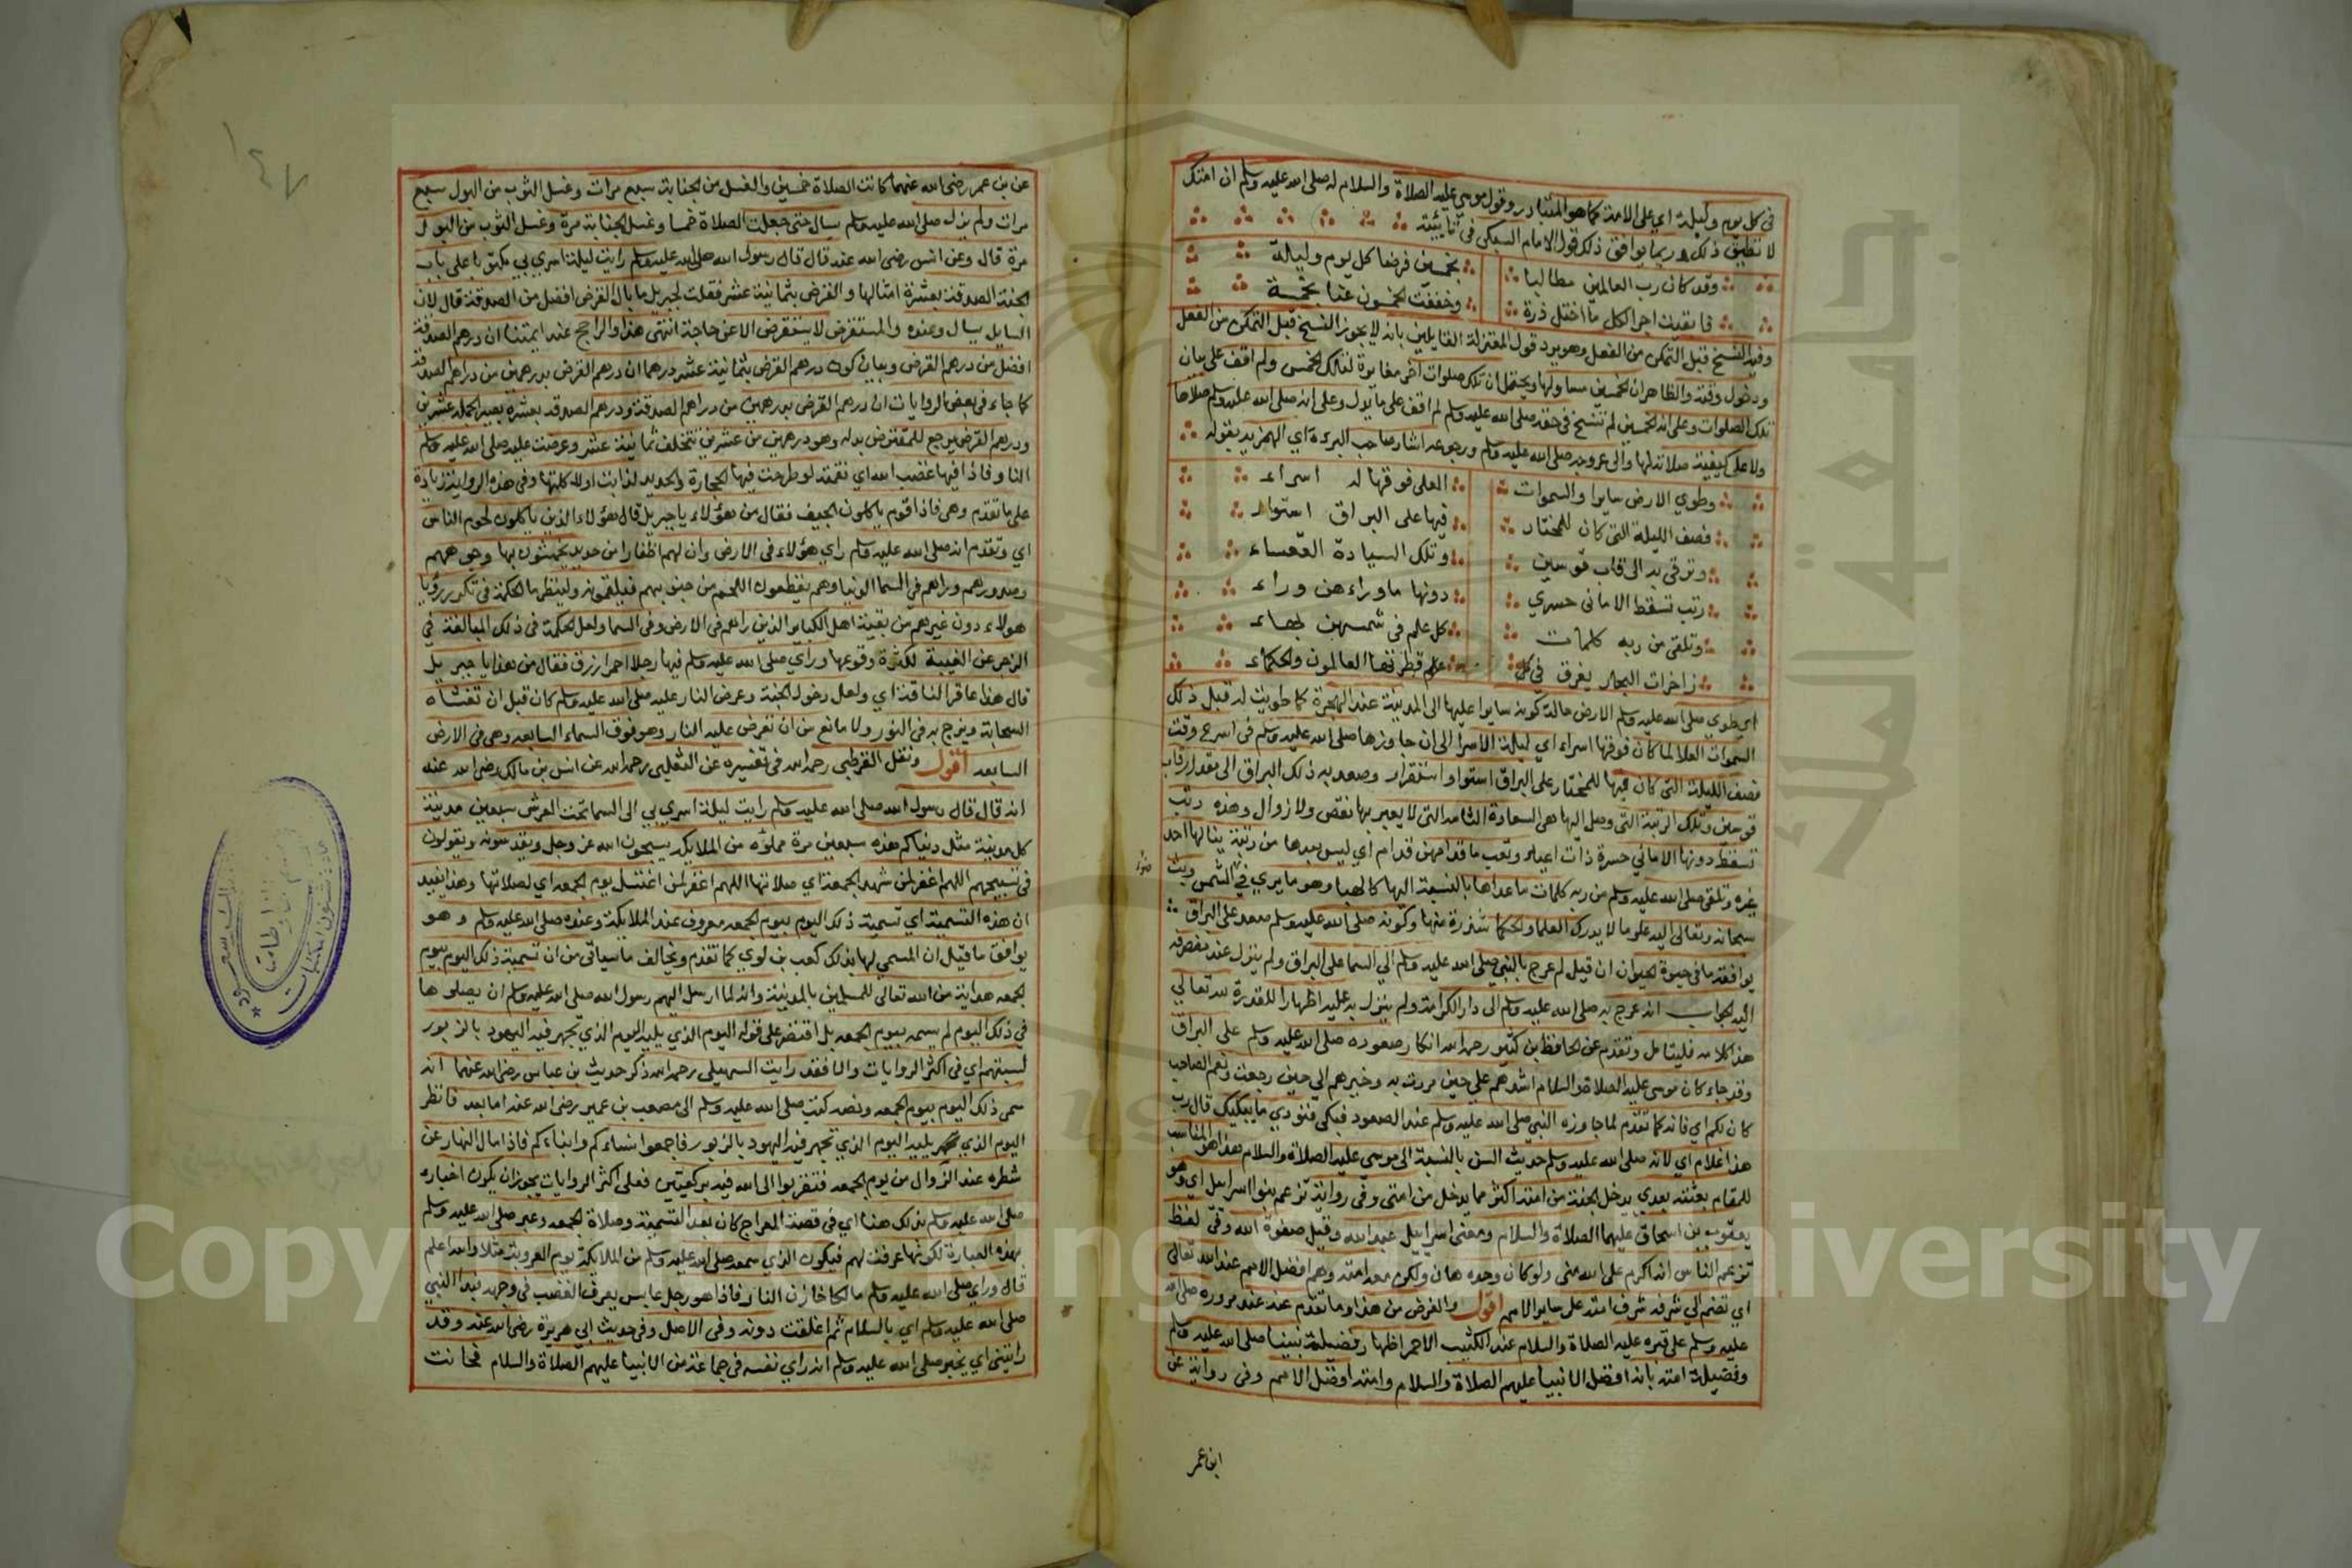 في كل يوم وليلة اي على الامة كما هو المتبادر وقول موسي عليه الصلاة والسلام له صلى الله عليه وسلم ان امتك
لا تطيق ذلك وربما يوافق ذلك قول الامام السبكي في تائيته
وقد كان رب العالمين مطالبا بخمسين فرضا كل يوم وليلة
فابقيت اجر الكل ما اختل ذرة وخففت الخمسون عنا بخمسة
وفيه النسخ قبل التمكن من الفعل وهو يرد قول المعتزلة القايلين بانه لا يجوز النسخ قبل التمكن من الفعل
ودخول وقته والظاهر ان الخمسين معا ولها ويحتمل ان تلك صلوات اخر مغايرة لتلك الخمس ولم اقف على بيان
تلك الصلوات وعلى انه الخمسين لم تنسخ في حقه صلى الله عليه وسلم لم اقف على ما يدل وعلى انه صلى الله عليه وسلم صلاها
ولا على كيفية صلاته لها والى عروجه صلى الله عليه وسلم ورجوعه اشار صاحب البردة اي الهمزية بقوله
وطوي الارض سايرا والسموات العلى فوقها له اسراء
فصف الليلة التي كان للمختار فيها على البراق استواء
وترقي به الى قاب قوسين وتلك السيادة القعساء
رتب تسقط الاماني حسري دونها ما وراءهن وراء
وتلقى من ربه كلمات كل علم في شمسهن هباء
زاخرات البحار يغرق في كل علم قطرتها العالمون والحكماء
اي طوي صلى الله عليه وسلم الارض حالة كونه سايرا عليها الى المدينة عند الهجرة كما طويت له قبل ذلك
السموات العلا لما كان فوقها اسراء اي ليلة الاسرا الى ان جاوزها صلى الله عليه وسلم في اسرع وقت
فصف الليلة التي كان فيها للمختار على البراق استواء واستقرار وصعد به ذلك البراق الى مقدار قاب
قوسين وتلك الرتبة التي وصل اليها هي السعادة الثابتة التي لا يعبر بها نقص ولا زوال وهذه رتب
تسقط دونها الاماني حسرة ذات اعياء وتعب ما قدامهن قدام اي ليس بعدها من رتبة ينالها احد
غيره وتلقى صلى الله عليه وسلم من ربه كلمات ما عداها بالنسبة اليها كالهبا وهو ما يري في الشمس وبث
ضوء
سبحانه وتعالى اليه علوما لا يدرك العلما والحكما شذرة منها وكونه صلى الله عليه وسلم صعد على البراق
يوافقه ما في حيوة الحيوان ان قيل لم عرج بالنبي صلى الله عليه وسلم الي السما على البراق ولم ينزل عند منصرفه
اليه الجواب انه عرج به صلى الله عليه وسلم الى دار الكرامة ولم ينزل به عليه اظهارا للقدرة لله تعالي
هذا كلامه فليتامل وتقدم عن الحافظ بن كثير رحمه الله انكار صعوده صلى الله عليه وسلم على البراق
وقد جاء كان موسى عليه الصلاة والسلام اشدهم علي حين مررت به وخيرهم الي حين رجعت ونعم الصاحب
كان لكم اي فانه كما تقدم لما جاوزه النبي صلى الله عليه وسلم عند الصعود فبكي فنودي ما يبكيك قال رب
هذا غلام اي لانه صلى الله عليه وسلم حديث السن بالنسبة الى موسى عليه الصلاة والسلام هذا هو المناسب
للمقام بعثته بعدي يدخل الجنة من امته اكثر مما يدخل من امتي وفي رواية تزعم بنوا اسرايل اي وهو
يعقوب بن اسحاق عليهما الصلاة والسلام ومعنى اسرايل عبد الله وقيل صفوة الله وفي لفظ
تزعم الناس انه اكرم على الله مني ولو كان وحده هان ولكن معه امته وهم افضل الامم عند الله تعالى
اي تضم الي شرفه شرف امته على ساير الامم اقول والغرض من هذا وما تقدم عنه عند مروره صلى الله
عليه وسلم على قبره عليه الصلاة والسلام عند الكثيب الاحمر اظهار فضيلة نبينا صلى الله عليه وسلم
وفضيلة امته بانه افضل الانبيا عليهم الصلاة والسلام وامته افضل الامم وفي رواية عن
ابن عمر
١٤٧
عن بن عمر رضي الله عنهما كانت الصلاة خمسين والغسل من الجنابة سبع مرات وغسل الثوب من البول سبع
مرات ولم يزل صلى الله عليه وسلم يسال حتى جعلت الصلاة خمسا وغسل الجنابة مرة وغسل الثوب من البول
مرة قال وعن انس رضي الله عنه قال قال رسول الله صلى الله عليه وسلم رايت ليلة اسري بي مكتوبا على باب
الجنة الصدقة بعشرة امثالها والقرض بثمانية عشر فقلت لجبريل ما بال القرض افضل من الصدقة قال لان
السايل يسال وعنده والمستقرض لا يستقرض الا عن حاجة انتهى هذا والراجح عند ايمتنا ان درهم الصدقة
افضل من درهم القرض وبيان كون درهم القرض بثمانية عشر درهما ان درهم القرض بدرهمين من دراهم الصدقة
كما جاء في بعض الروايات ان درهم القرض بدرهمين من دراهم الصدقة ودرهم الصدقة بعشره يصير الجملة عشرين
ودرهم القرض يرجع للمقترض بدله وهو درهمين من عشرين تتخلف ثمانية عشر وعرضت عليه صلى الله عليه وسلم
النار فاذا فيها غضب الله اي نقمته لو طرحت فيها الحجارة والحديد لذابت اولا كلتها وفي هذه الرواية زيادة
على ما تقدم وهي فاذا قوم ياكلون الجيف فقال من هؤلاء يا جبريل قال هؤلاء الذين ياكلون لحوم الناس
اي وتقدم انه صلى الله عليه وسلم راي هؤلاء في الارض وان لهم اظفارا من حديد يخمشون بها وجوههم
وصدورهم وراهم في السما الدنيا وهم يقطعون اللحم من جنوبهم فيلقمونه ولينظر ما الحكمة في تكرر رؤيا
هولاء دون غيرهم من بقية اهل الكباير الذين راهم في الارض وفي السما ولعل الحكمة في ذلك المبالغة في
الزجر عن الغيبة لكثرة وقوعها وراي صلى الله عليه وسلم فيها رجلا احمر ازرق فقال من هذا يا جبريل
قال هذا عاقر الناقة اي ولعل دخول الجنة وعرض النار عليه صلى الله عليه وسلم كان قبل ان تغشاه
السحابة ويزج به في النور ولا مانع من ان تعرض عليه النار وهو فوق السماء السابعه وهي في الارض
السابعه اقول ونقل القرطبي رحمه الله في تفسيره عن الثعلبي رحمه الله عن انس بن مالك رضي الله عنه
انه قال قال رسول الله صلى الله عليه وسلم رايت ليلة اسري بي الى السما تحت العرش سبعين مدينة
كل مدينة مثل دنياكم هذه سبعين مرة مملؤه من الملايكه يسبحون الله عز وجل ويقدسونه ويقولون
في تسبيحهم اللهم اغفر لمن شهد الجمعة اي صلاتها اللهم اغفر لمن اغتسل يوم الجمعه اي لصلاتها وهذا يفيد
ان هذه التسمية اي تسمية ذلك اليوم بيوم الجمعه معروف عند الملايكة وعنده صلى الله عليه وسلم وهو
يوافق ما قيل ان المسمي لها بذلك كعب بن لوي كما تقدم ويخالف ما سياتي من ان تسمية ذلك اليوم بيوم
الجمعه هداية من الله تعالى للمسلمين بالمدينة وانه لما ارسل اليهم رسول الله صلى الله عليه وسلم ان يصلوها
في ذلك اليوم لم يسمه بيوم الجمعه بل اقتصر على قوله اليوم الذي يليه اليوم الذي تجهر فيه اليهود بالزبور
لسبتهم اي في اكثر الروايات والا فقد رايت السهيلي رحمه الله ذكر حديث بن عباس رضي الله عنهما انه
سمى ذلك اليوم بيوم الجمعه ونصه كتب صلى الله عليه وسلم الى مصعب بن عمير رضي الله عنه اما بعد فانظر
اليوم الذي يليه اليوم الذي تجهر فيه اليهود بالزبور فاجمعوا نساءكم وابناءكم فاذا مال النهار عن
شطره عند الزوال من يوم الجمعه فتقربوا الى الله فيه بركعتين فعلى اكثر الروايات يجوز ان يكون اخباره
صلى الله عليه وسلم بذلك هنا اي في قصة المعراج كان بعد التسمية وصلاة الجمعه وعبر صلى الله عليه وسلم
بهذه العبارة لكونها عرفت لهم فيكون الذي سمعه صلى الله عليه وسلم من الملايكة يوم العروبة مثلا والله اعلم
قال وراي صلى الله عليه وسلم مالكا خازن النار فاذا هو رجل عابس يعرف الغضب في وجهه فبدا النبي
صلى الله عليه وسلم اي بالسلام ثم اغلقت دونه وفي الاصل وفي حديث ابي هريرة رضي الله عنه وقد
رايتني اي يخبر صلى الله عليه وسلم انه راي نفسه في جماعة من الانبيا عليهم الصلاة والسلام فحانت